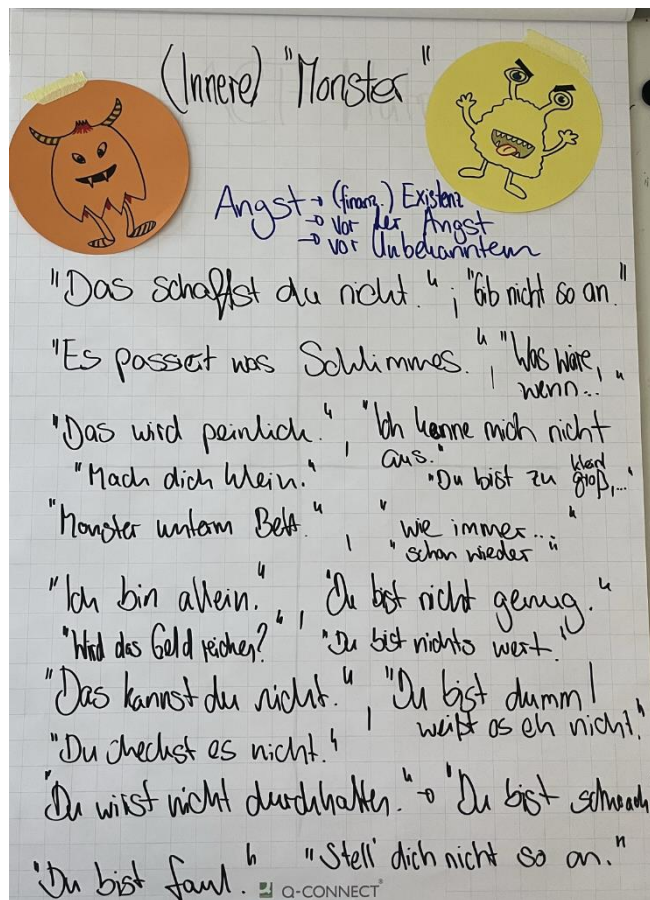 (Innere) "Monster"
Angst → (finanz.) Existenz
→ vor der Angst
→ vor Unbekanntem
"Das schaffst du nicht." ; "Gib nicht so an."
"Es passiert was Schlimmes." , "Was wäre,
wenn..."
"Das wird peinlich." , "Ich kenne mich nicht
aus."
"Mach dich klein." "Du bist zu klein/groß,..."
"Monster unterm Bett." , "wie immer..."
"schon wieder"
"Ich bin allein." , "Du bist nicht genug."
"Wird das Geld reichen?" "Du bist nichts wert."
"Das kannst du nicht." , "Du bist dumm/
weißt es eh nicht."
"Du checkst es nicht."
"Du wirst nicht durchhalten." → "Du bist schwach
"Du bist faul." "Stell' dich nicht so an."
Q-CONNECT®